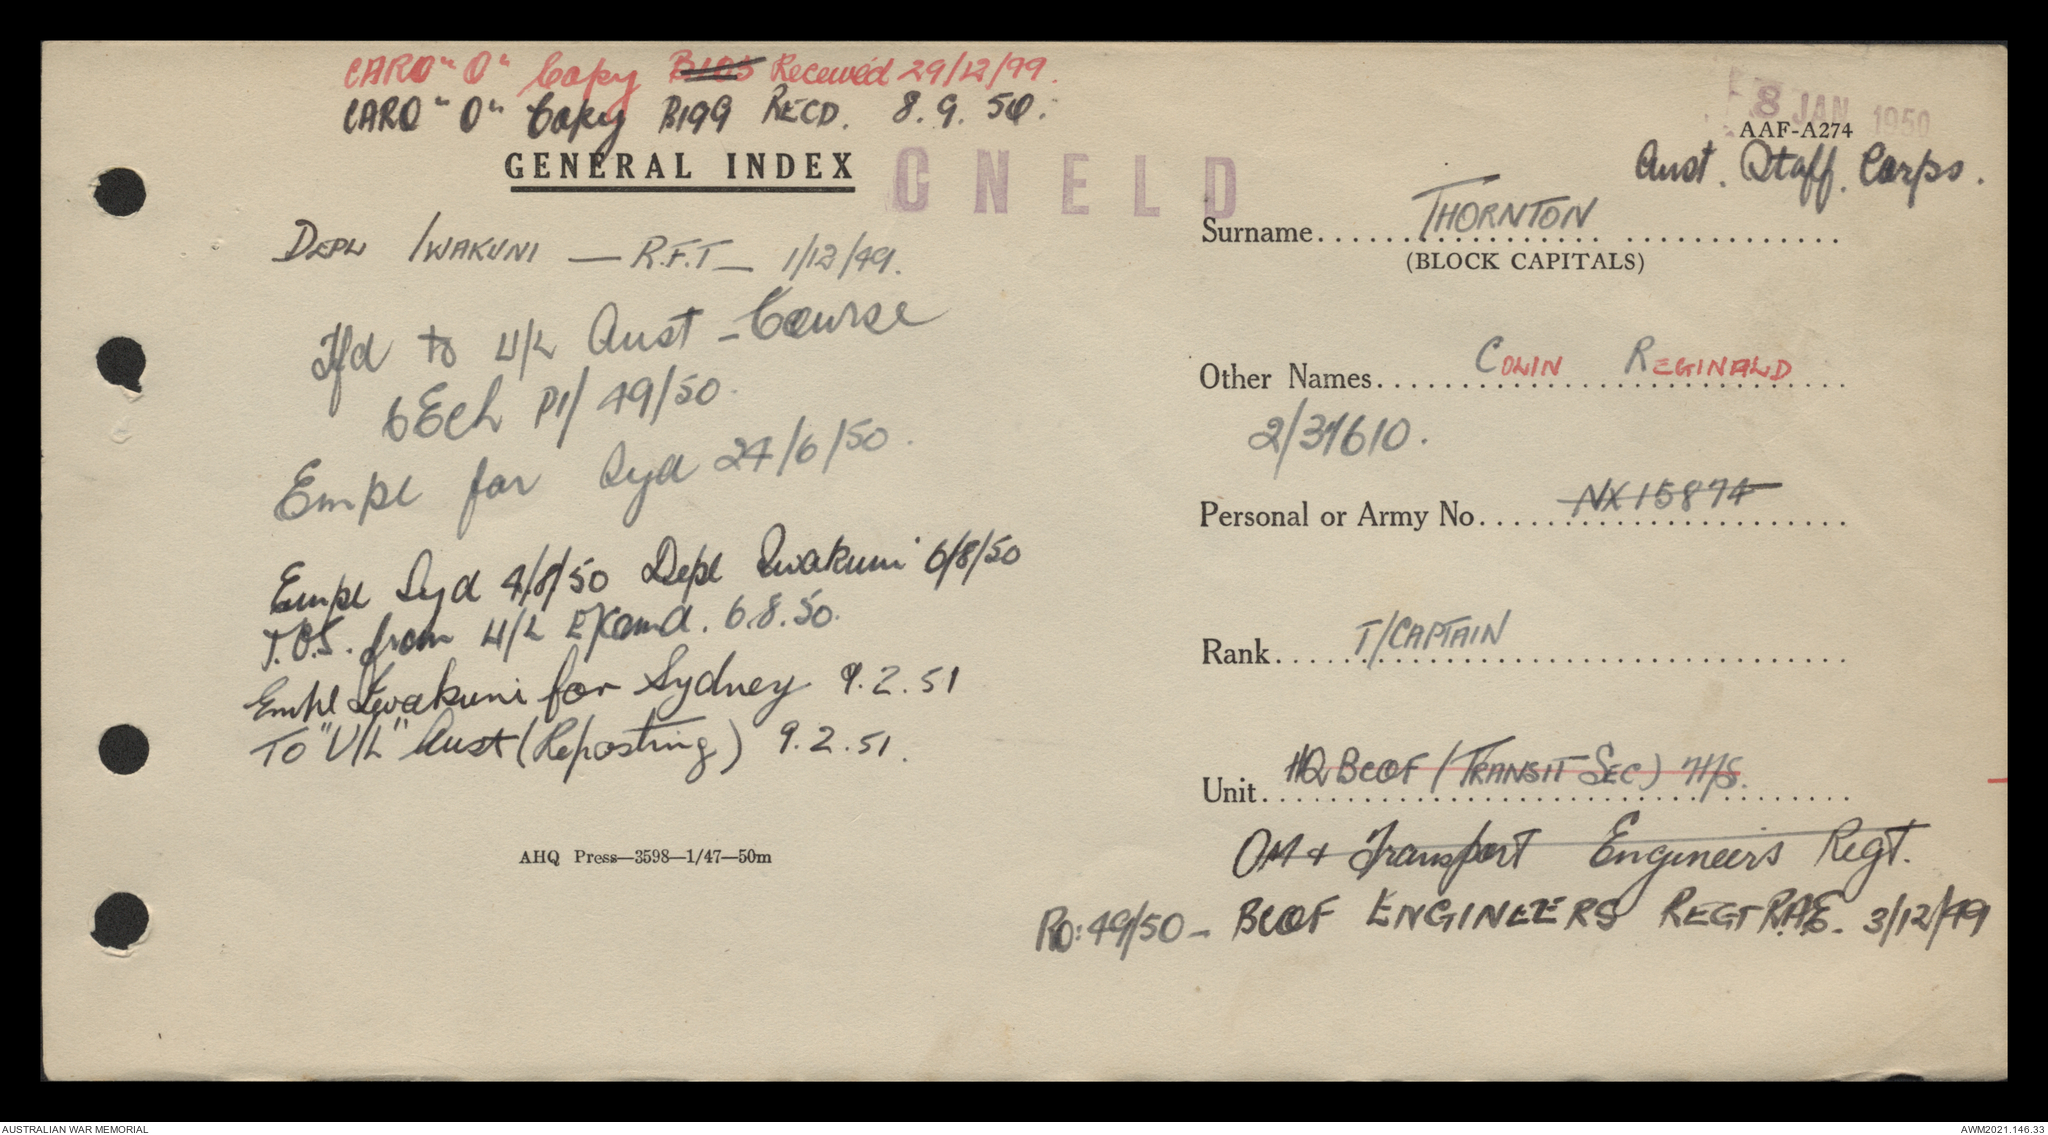 CARO "O" Copy B105 Received 29/12/49.
CARO "O" Copy B199 RECD. 8.9.50.
8 JAN 1950
AAF-A274
Aust. Staff. Corps.
GENERAL INDEX
CNELD
Surname THORNTON
(BLOCK CAPITALS)
DEPL IWAKUNI — R.F.T — 1/12/49.
Tfd to U/L Aust - Course
6 Ech PI/ 49/50.
Empl for Syd 24/6/50.
Empl Syd 4/8/50 Depl Iwakuni 6/8/50
T.O.S. from U/L Exam. 6.8.50.
Empl Iwakuni for Sydney 9.2.51
To "U/L" Aust (Reposting) 9.2.51.
AHQ Press—3598—1/47—50m
Other Names COLIN REGINALD
2/37610.
Personal or Army No. NX15874
Rank T/CAPTAIN
Unit HQ BCOF (TRANSIT SEC)
OM & Transport Engineers Regt.
RO: 49/50 - BCOF ENGINEERS REGT RAE. 3/12/49
AUSTRALIAN WAR MEMORIAL
AWM2021.146.33